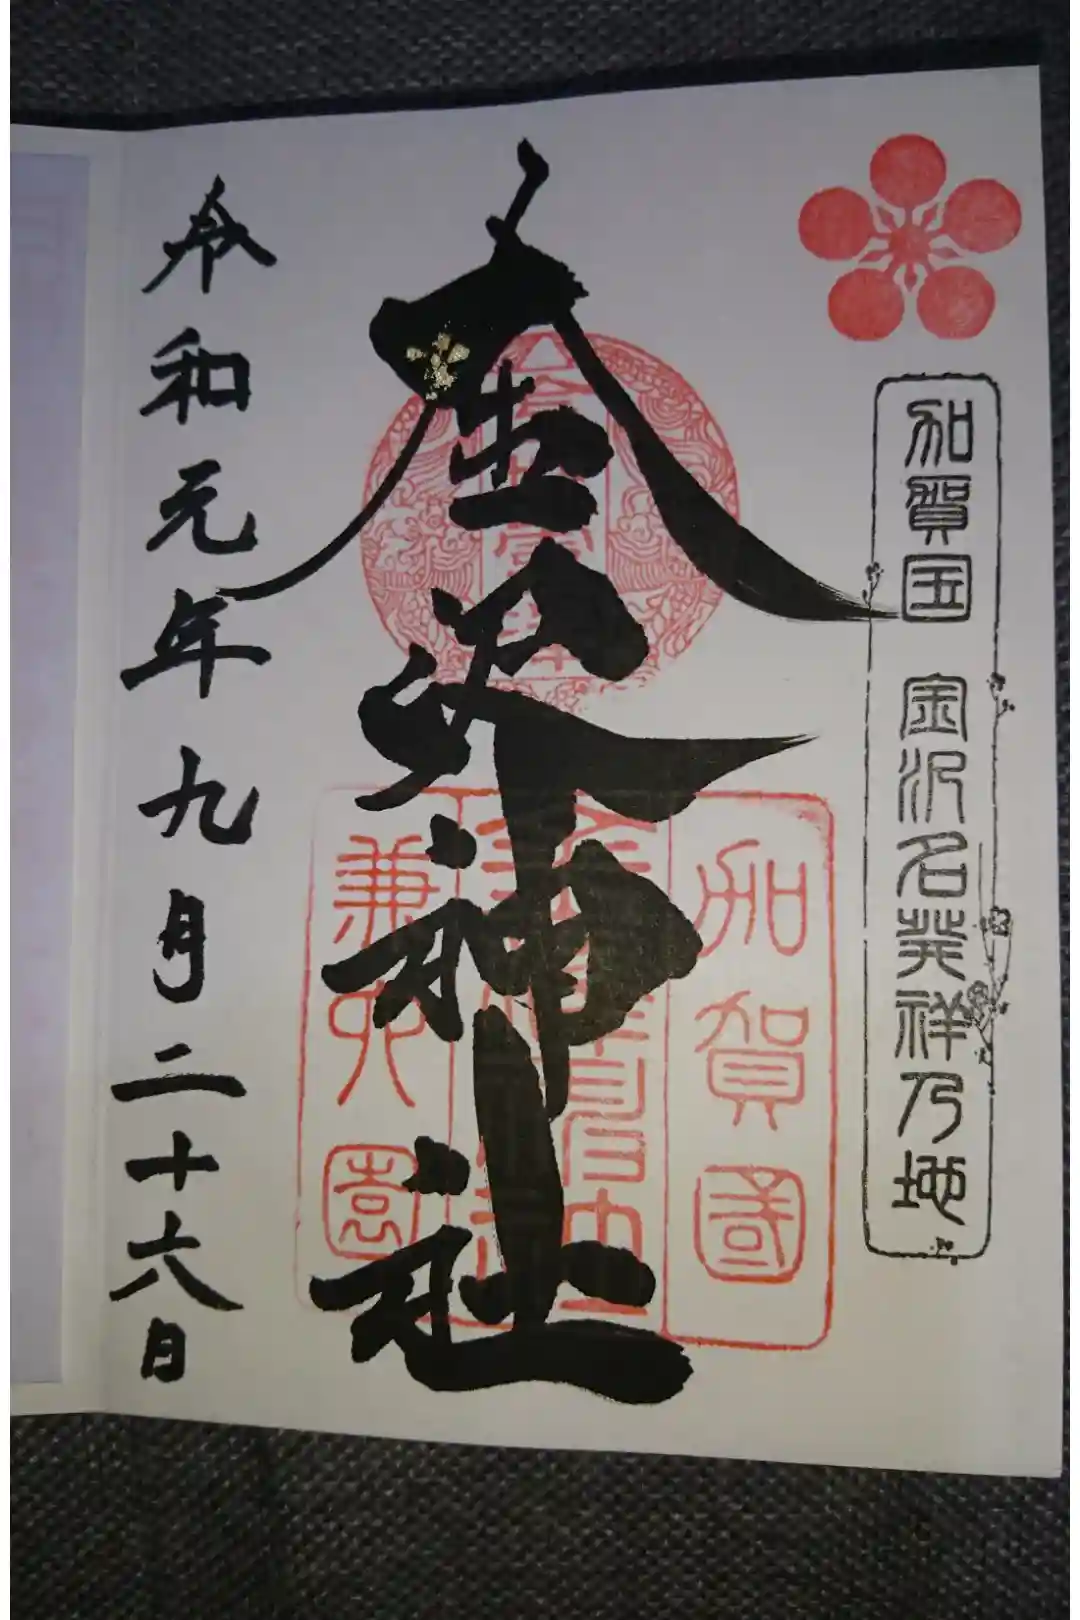 加賀国 金沢名発祥乃地
金沢神社
加賀國
兼六園
令和元年九月二十六日